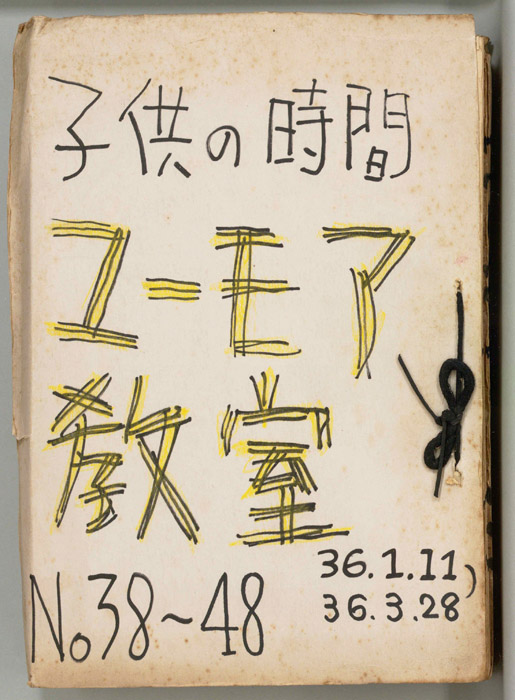 子供の時間
ユーモア
教室
No.38~48
36.1.11)
36.3.28